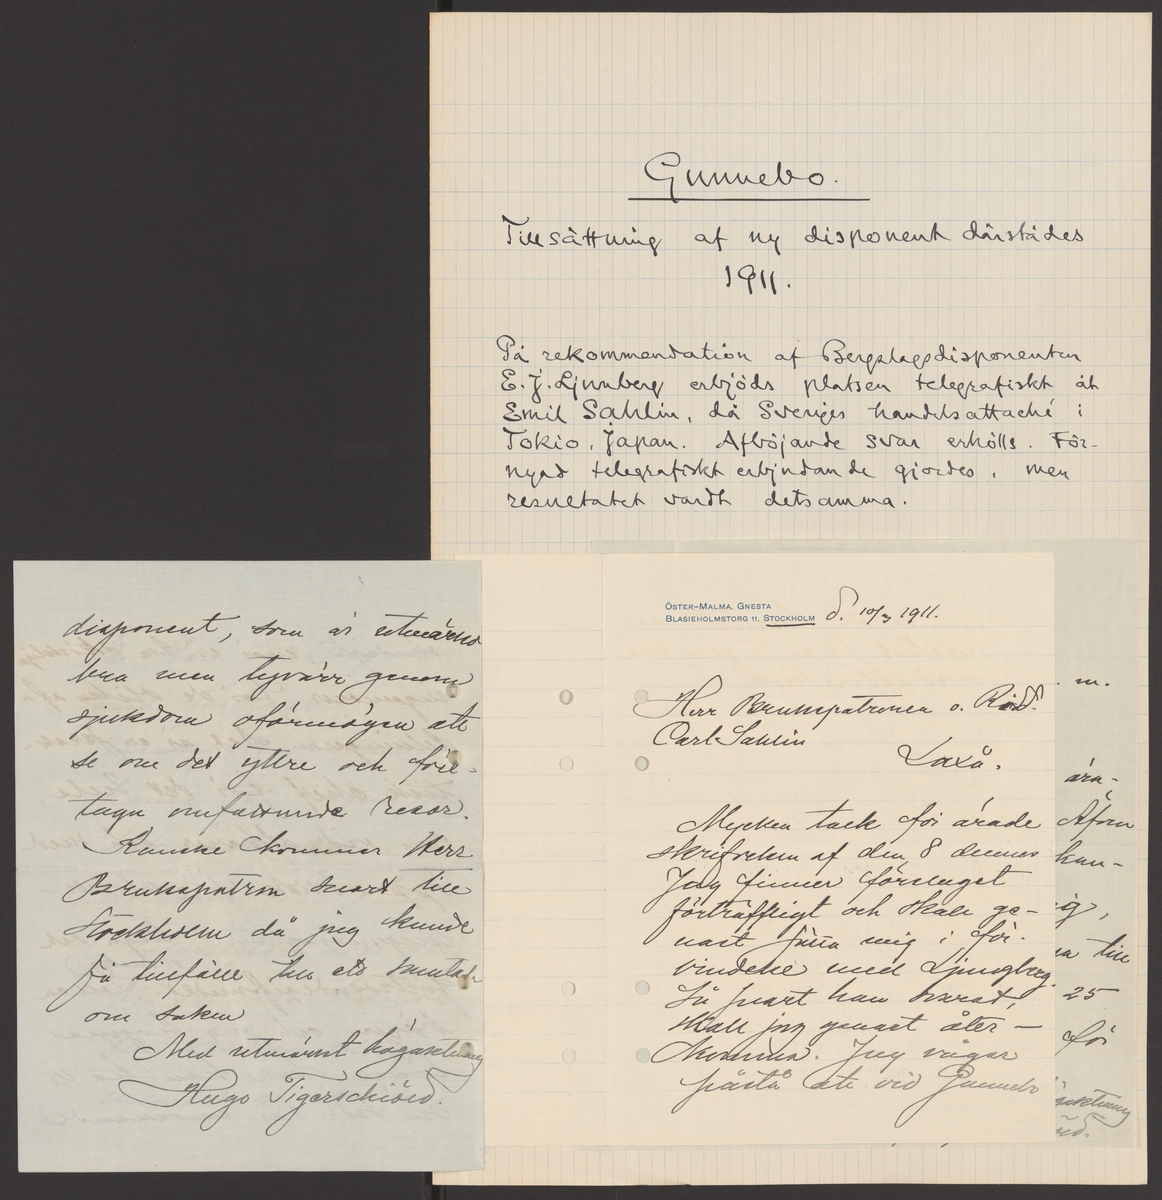 Gunnebo.
Tillsättning af ny disponent därstädes
1911.
På rekommendation af Bergslagsdisponenten
E. J. Ljunberg erbjöds platsen telegrafiskt åt
Emil Sahlin, då Sveriges handelsattaché i
Tokio, Japan. Afböjande svar erhölls. För-
nyad telegrafiskt erbjudande gjordes, men
resultatet vardt detsamma.
ÖSTER-MALMA, GNESTA
BLASIEHOLMSTORG 11, STOCKHOLM d. 10/3 1911.
Herr Brukspatronen o. Ridd.
Carl Sahlin
Laxå.
Mycken tack för ärade
skrifvelsen af den 8 dennes
Jag finner förslaget
förträffligt och skall ge-
nast sätta mig i för-
bindelse med Ljungberg.
Så snart han svarat,
skall jag genast åter-
komma. Jag vågar
påstå att vid Gunnebo
disponent, som är utmärkt
bra men tyvärr genom
sjukdom oförmögen att
se om det yttre och före-
taga omfattande resor.
Kanske kommer Herr
Brukspatron snart till
Stockholm då jag kunde
få tillfälle till ett samtal
om saken
Med utmärkt högaktning
Hugo Tigerschiöld.
m.
ära-
Åfven
kan-
ig,
till
25
för